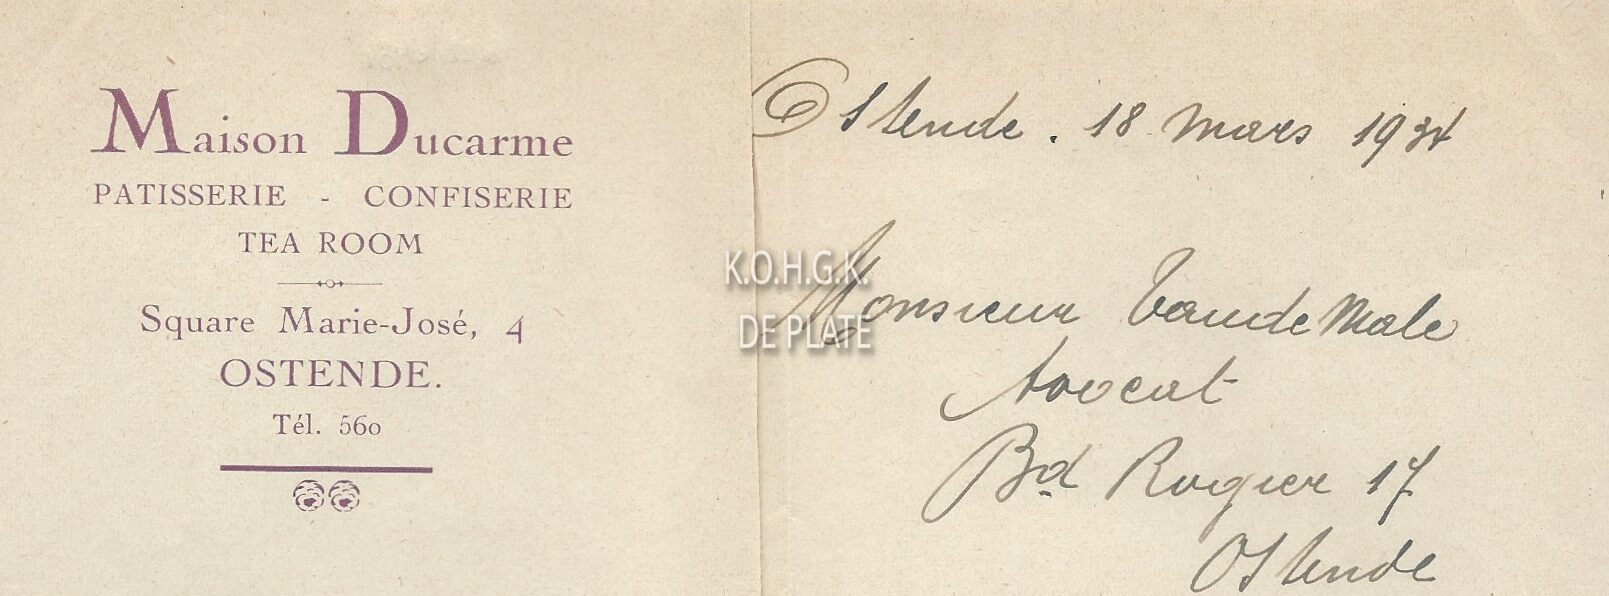 Maison Ducarme
PATISSERIE - CONFISERIE
TEA ROOM
Square Marie-José, 4
OSTENDE.
Tél. 560
Ostende. 18 mars 1934
Monsieur VandeMale
Avocat
Bd Rogier 17
Ostende
K.O.H.G.K.
DE PLATE